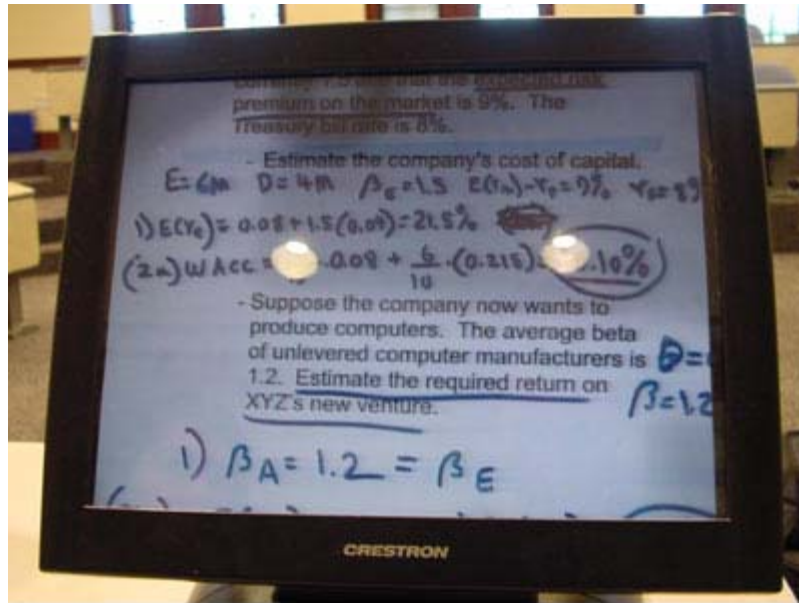 that the expected risk
premium on the market is 9%. The
Treasury bill rate is 8%.
- Estimate the company's cost of capital.
E=6M D=4M βE=1.5 E(rm)-rf=9% rf=8%
1) E(re)=0.08+1.5(0.09)=21.5%
(2a) WACC = .0.08 + 6/10 .(0.215)= .10%
- Suppose the company now wants to
produce computers. The average beta
of unlevered computer manufacturers is
1.2. Estimate the required return on
XYZ's new venture.
β=1.2
1) βA = 1.2 = βE
CRESTRON